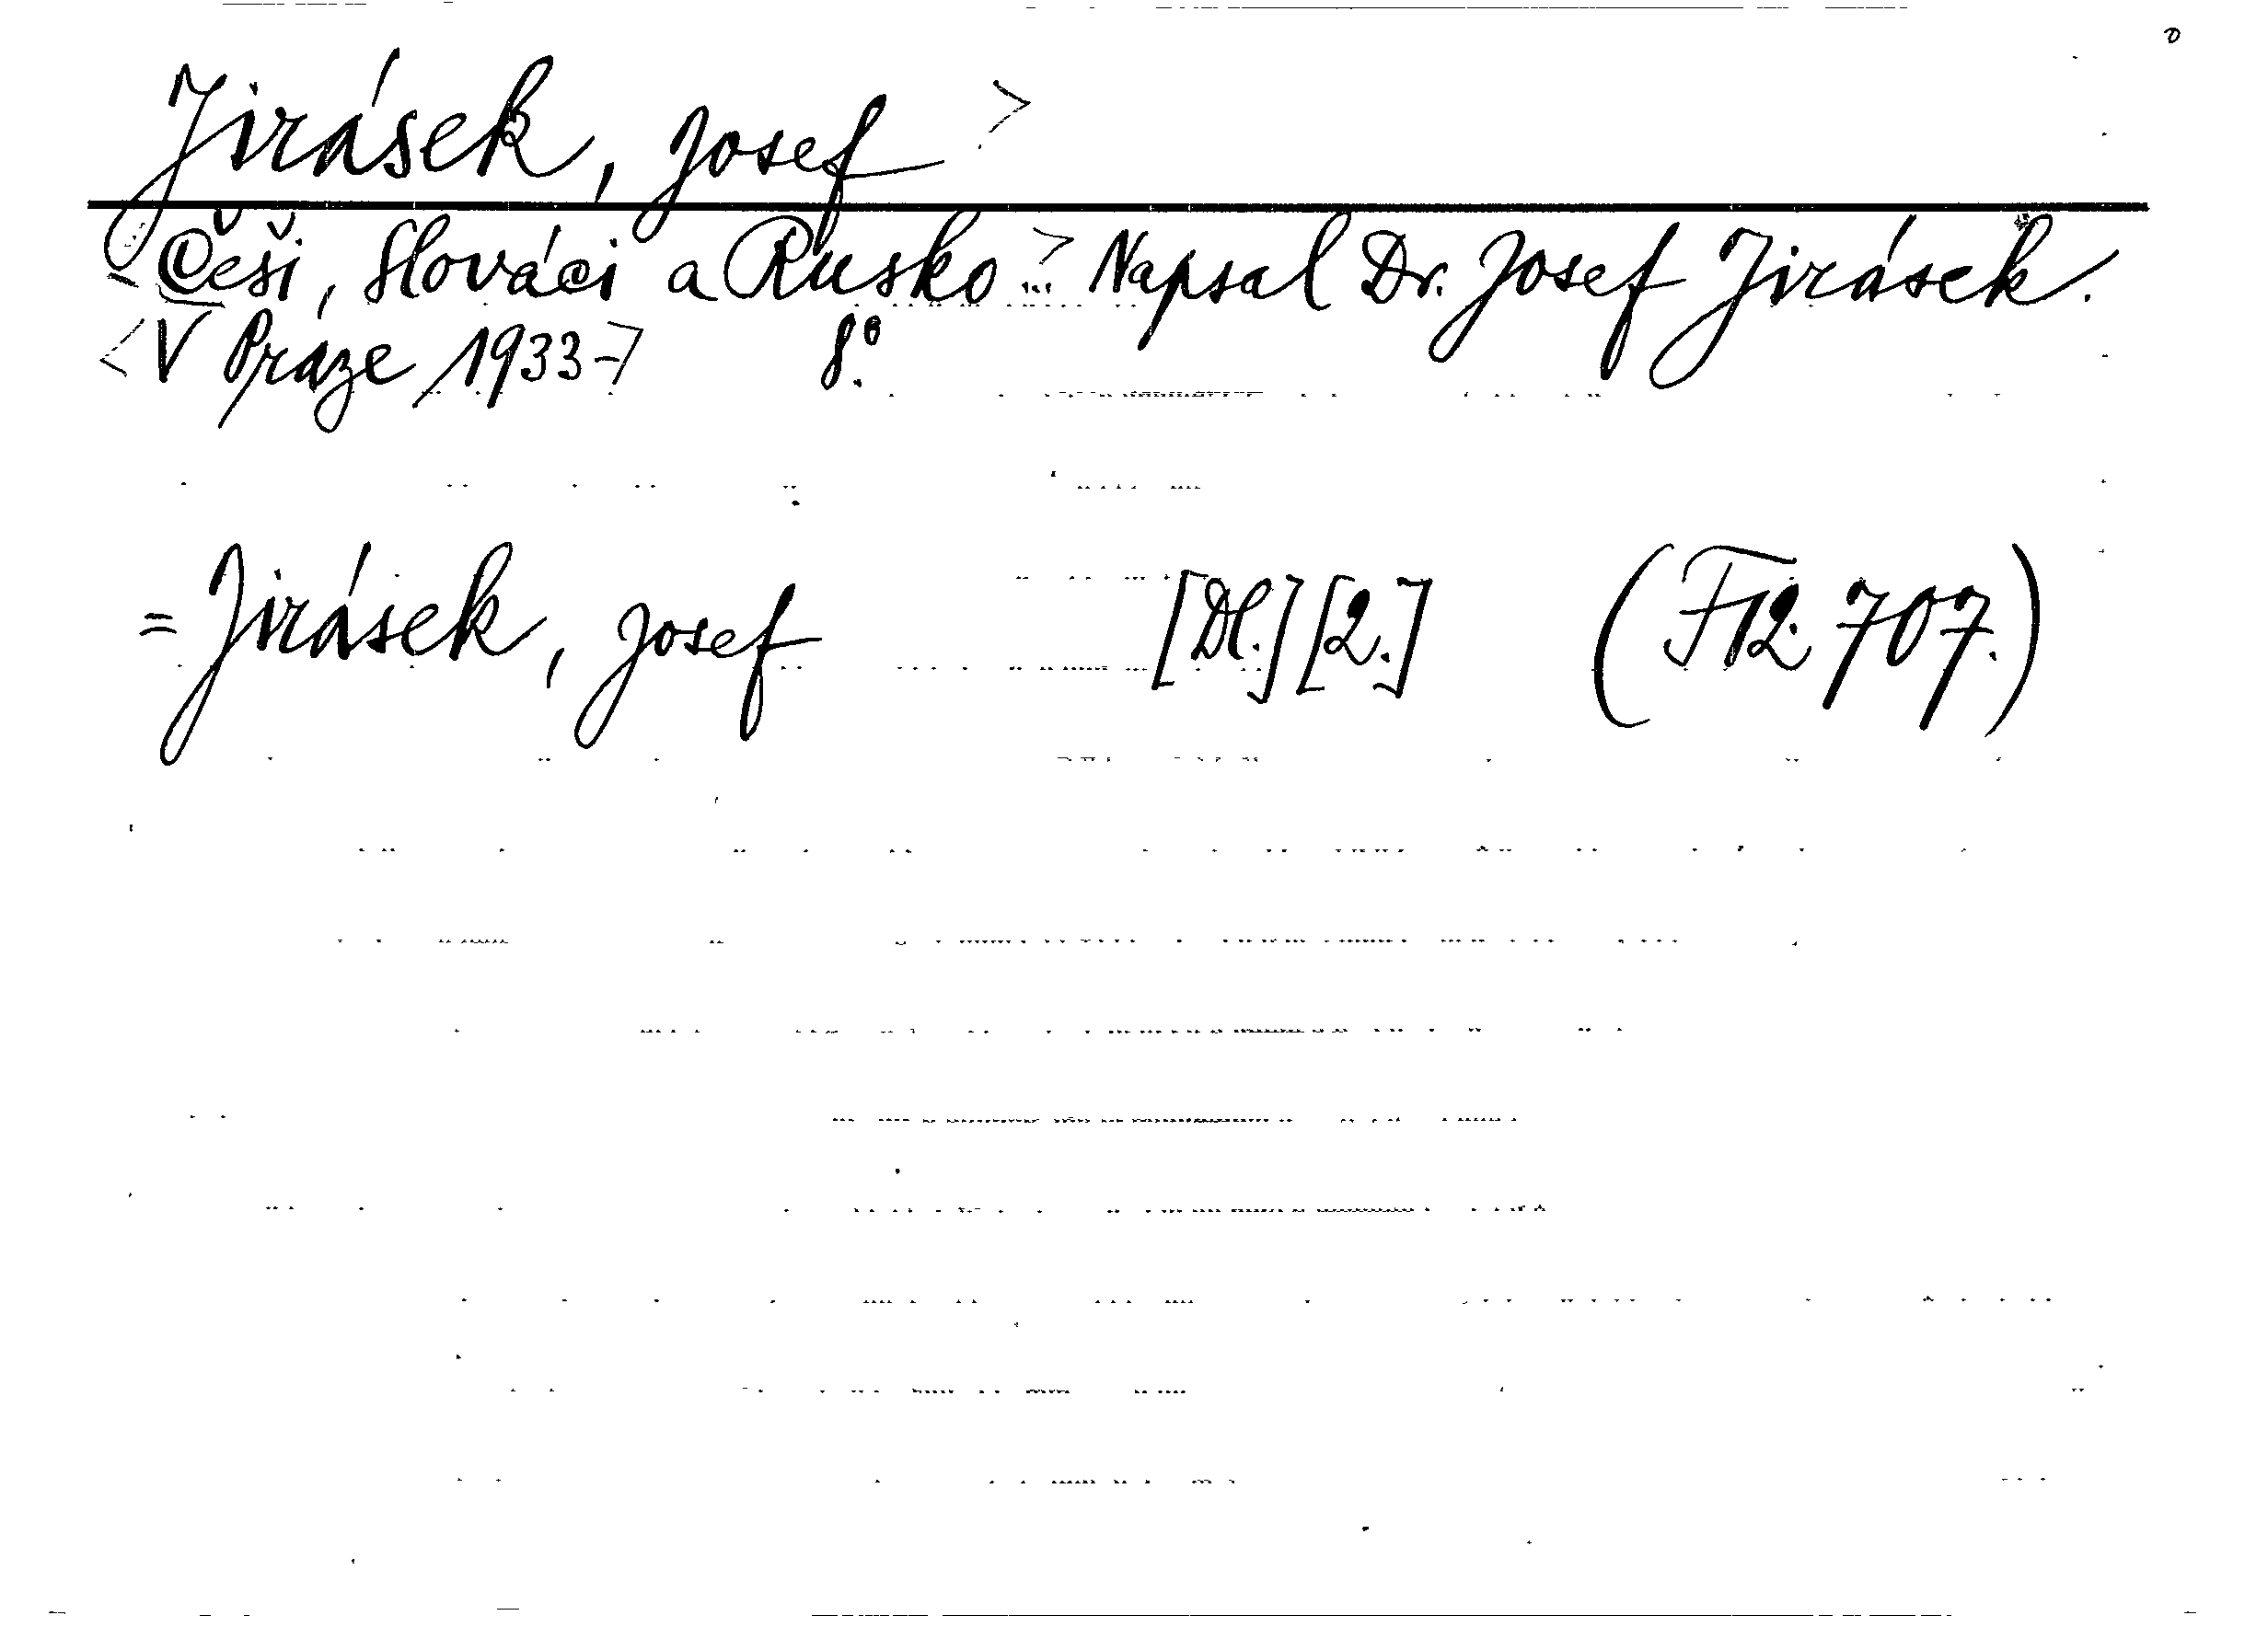 Jirásek, Josef >
- Češi, Slováci a Rusko ...> Napsal Dr. Josef Jirásek.
<V Praze 1933-> 8.°
= Jirásek, Josef [Dl.] [2.] (F12.707.)